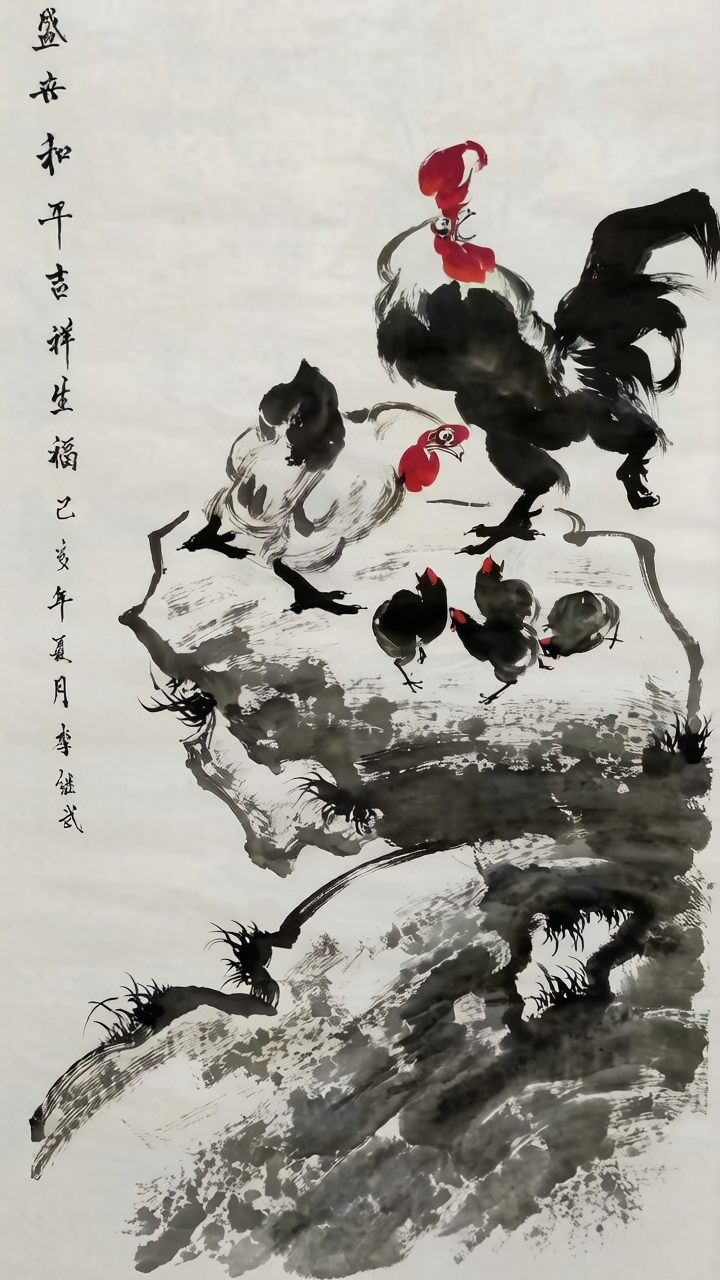 盛世和平吉祥生福己亥年夏月李继武